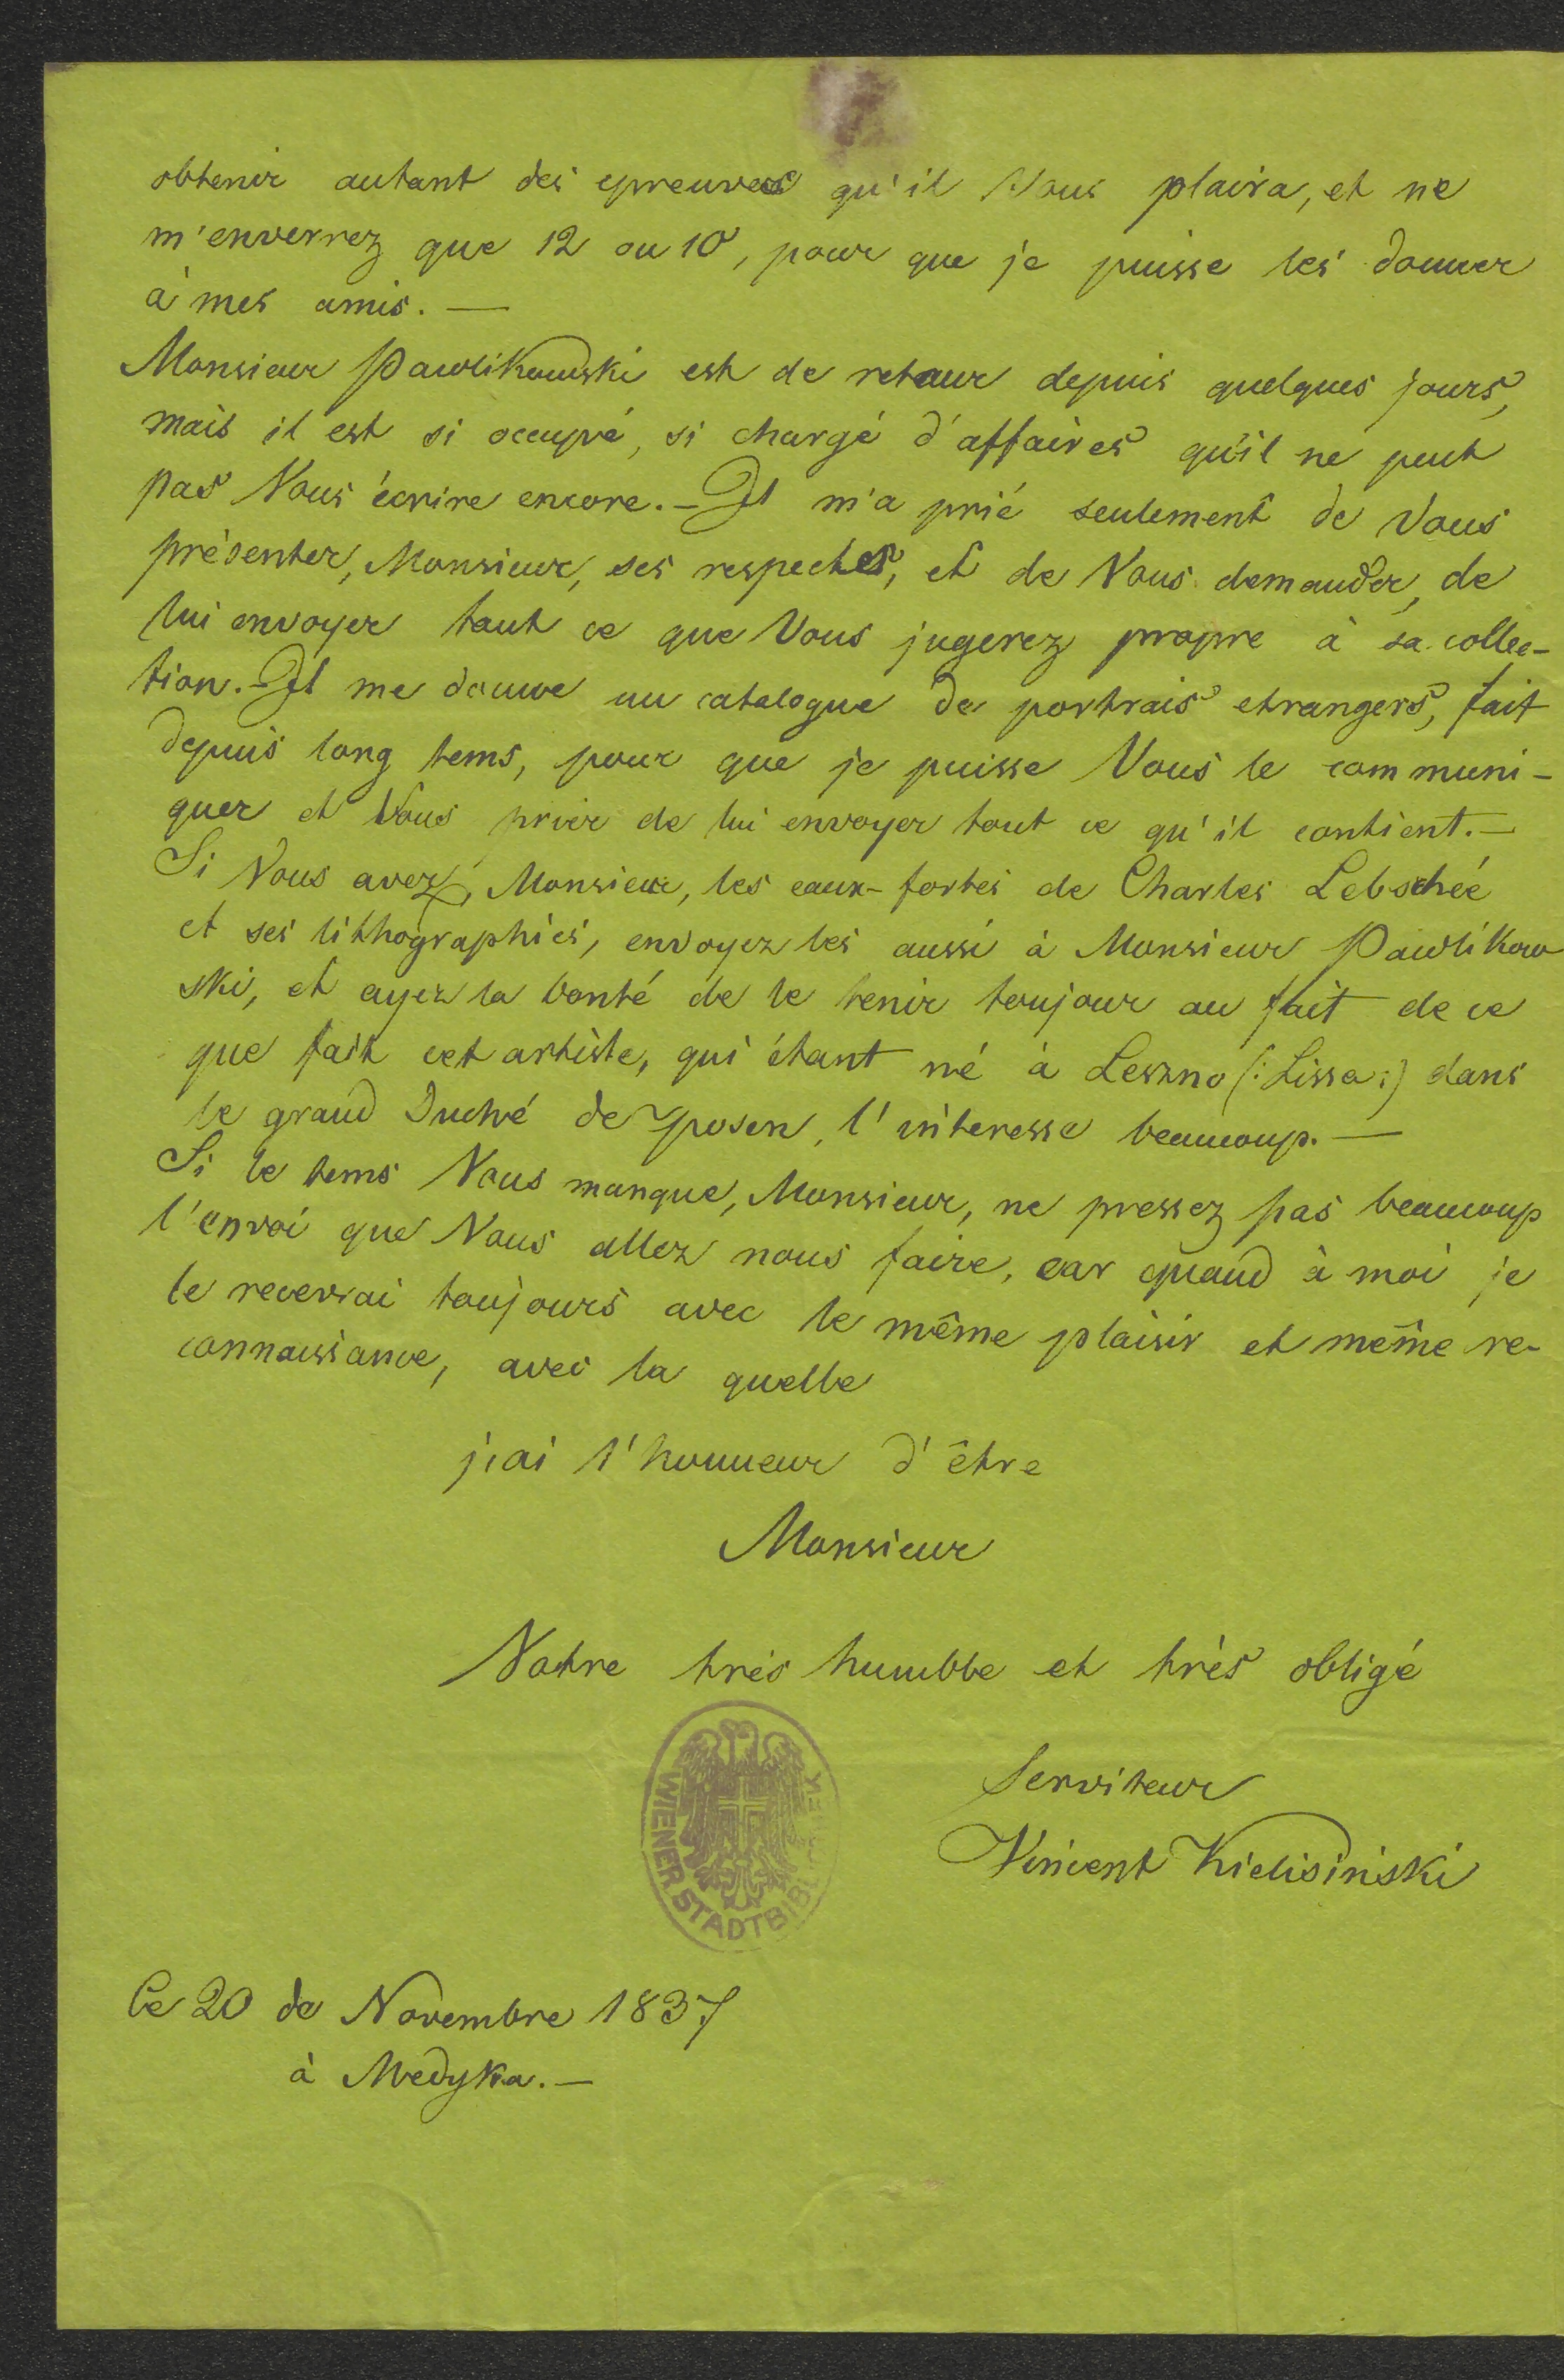 obtenir autant des epreuves qu'il Vous plaira, et ne
m'enverrez que 12 ou 10, pour que je puisse les donner
à mes amis. —
Monsieur Pawlikowski est de retour depuis quelques jours,
mais il est si occupé, si chargé d'affaires qu'il ne peut
pas Vous écrire encore. - Il m'a prié seulement de Vous
présenter, Monsieur, ses respectes, et de Vous demander, de
lui envoyer tout ce que Vous jugerez propre à sa collec-
tion. - Il me donne un catalogue de portrais etrangers, fait
depuis long tems, pour que je puisse Vous le communi-
quer et Vous prier de lui envoyer tout ce qu'il contient. —
Si Vous avez, Monsieur, les eaux-fortes de Charles Lebschée
et ses lithographies, envoyez les aussi à Monsieur Pawlikow
ski, et ayez la bonté de le tenir toujour au fait de ce
que fait cet artiste, qui étant né à Leszno (: Lissa :) dans
le grand Duché de Posen, l'interesse beaucoup. —
Si le tems Vous manque, Monsieur, ne pressez pas beaucoup
l'envoi que Vous allez nous faire, car quand à moi je
le recevrai toujours avec le même plaisir et même re-
connaissance, avec la quelle
j'ai l'honneur d'être
Monsieur
Votre très humble et très obligé
Serviteur
Vincent Kielisiński
WIENER STADTBIBLIOTHEK
Ce 20 de Novembre 1837
à Medyka. —